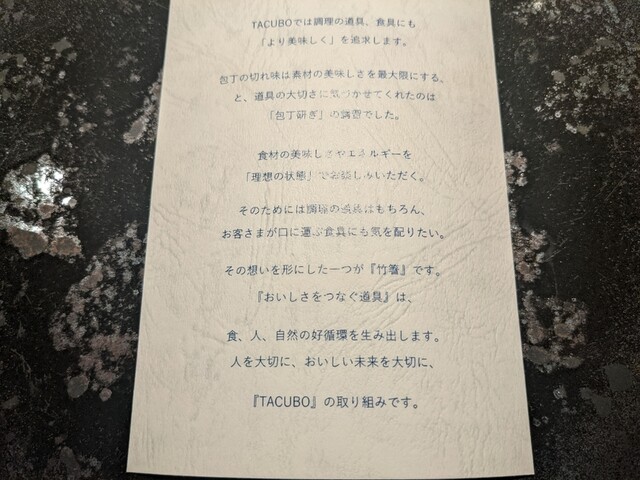 TACUBOでは調理の道具、食具にも
「より美味しく」を追求します。
包丁の切れ味は素材の美味しさを最大限にする、
と、道具の大切さに気づかせてくれたのは
「包丁研ぎ」の講習でした。
食材の美味しさやエネルギーを
「理想の状態」でお楽しみいただく。
そのためには調理の道具はもちろん、
お客さまが口に運ぶ食具にも気を配りたい。
その想いを形にした一つが『竹箸』です。
『おいしさをつなぐ道具』は、
食、人、自然の好循環を生み出します。
人を大切に、おいしい未来を大切に、
『TACUBO』の取り組みです。